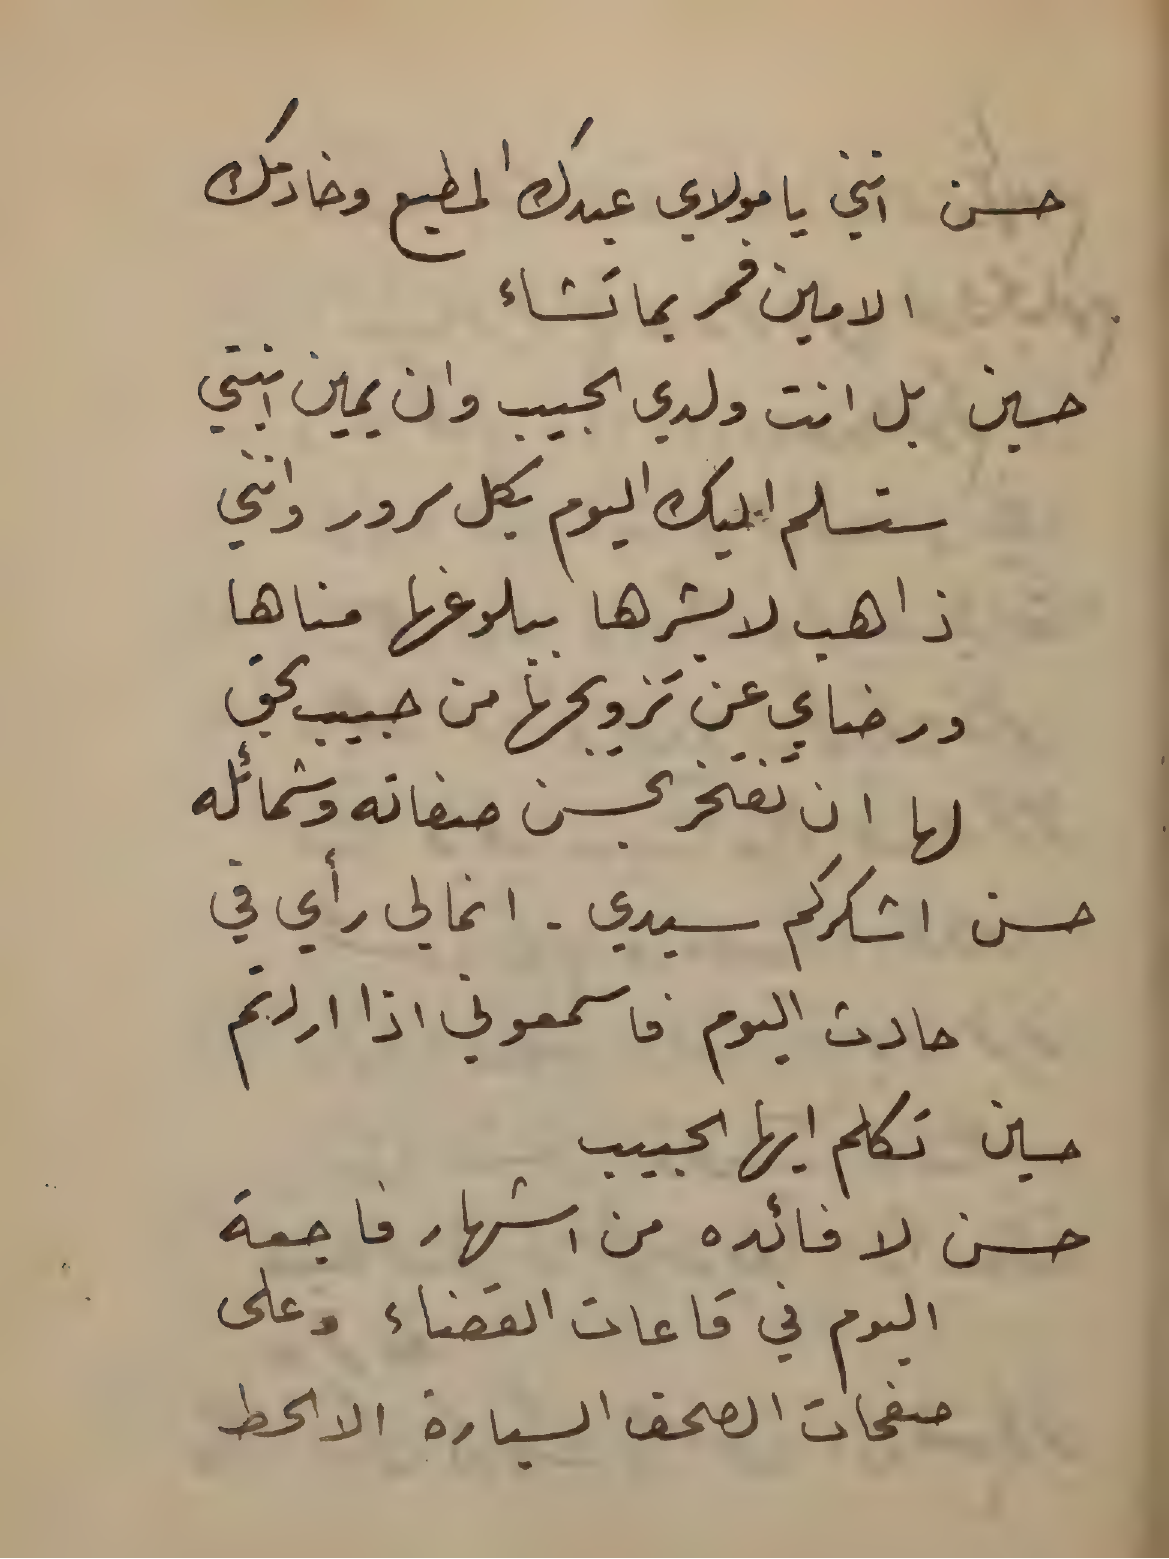 حسن انني يا مولاي عبدك المطيع وخادمك
الامين فمر بما تشاء
حسين بل انت ولدي الحبيب وان يمين ابنتي
ستسلم اليك اليوم بكل سرور وانني
ذاهب لابشرها ببلوغها مناها
ورضاي عن تزويجها من حبيب يحق
لها ان تفتخر بحسن صفاته وشمائله
حسن اشكركم سيدي . انما لي رأي في
حادث اليوم فاسمعوني اذا اردتم
حسين تكلم ايها الحبيب
حسن لا فائده من اشهار فاجعة
اليوم في قاعات القضاء وعلى
صفحات الصحف السيارة الا الحط